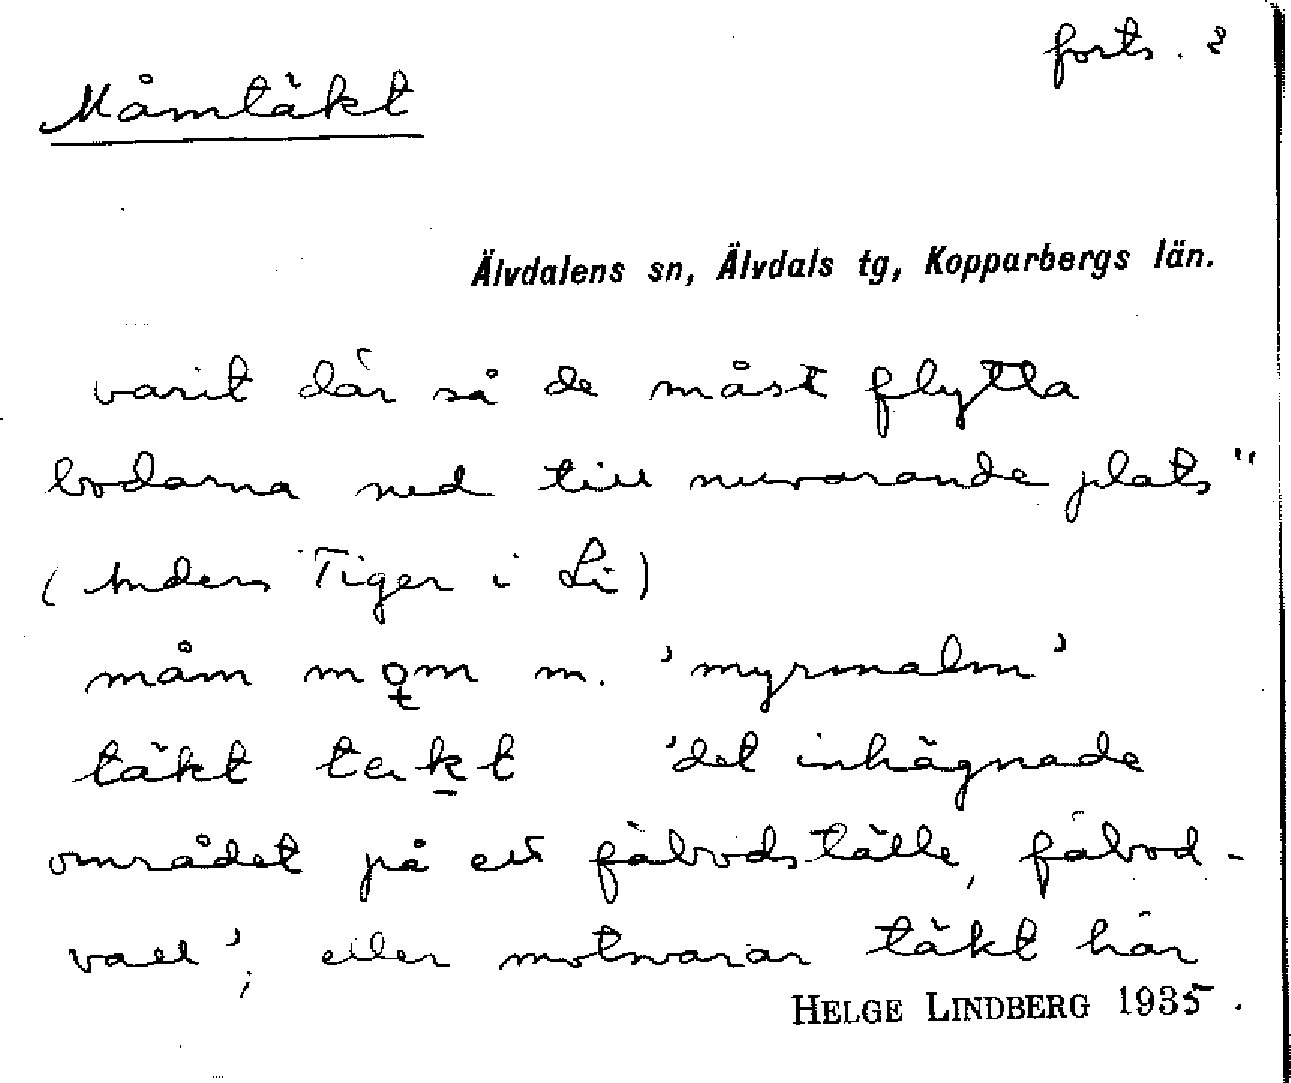 forts. 2
Måmtäkt
Älvdalens sn, Älvdals tg, Kopparbergs län.
varit där så de måst flytta
bodarna ned till nuvarande plats"
(Anders Tiger i Li)
måm m. 'myrmalm'
täkt 'det inhägnade
området på ett fäbodställe, fäbod-
vall'; eller motsvarar täkt här
HELGE LINDBERG 1935.